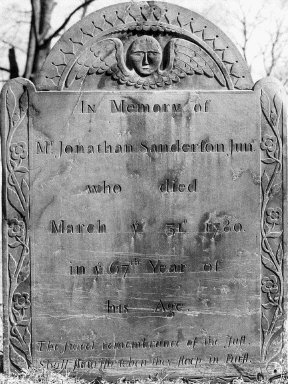 In Memory of
Mr. Jonathan Sanderſon Junr.
who died
March ye 31st 1780
in ye 67th Year of
his Age.
The ſweet remembrance of the Juſt
Shall flouriſh when they ſleep in Duſt.